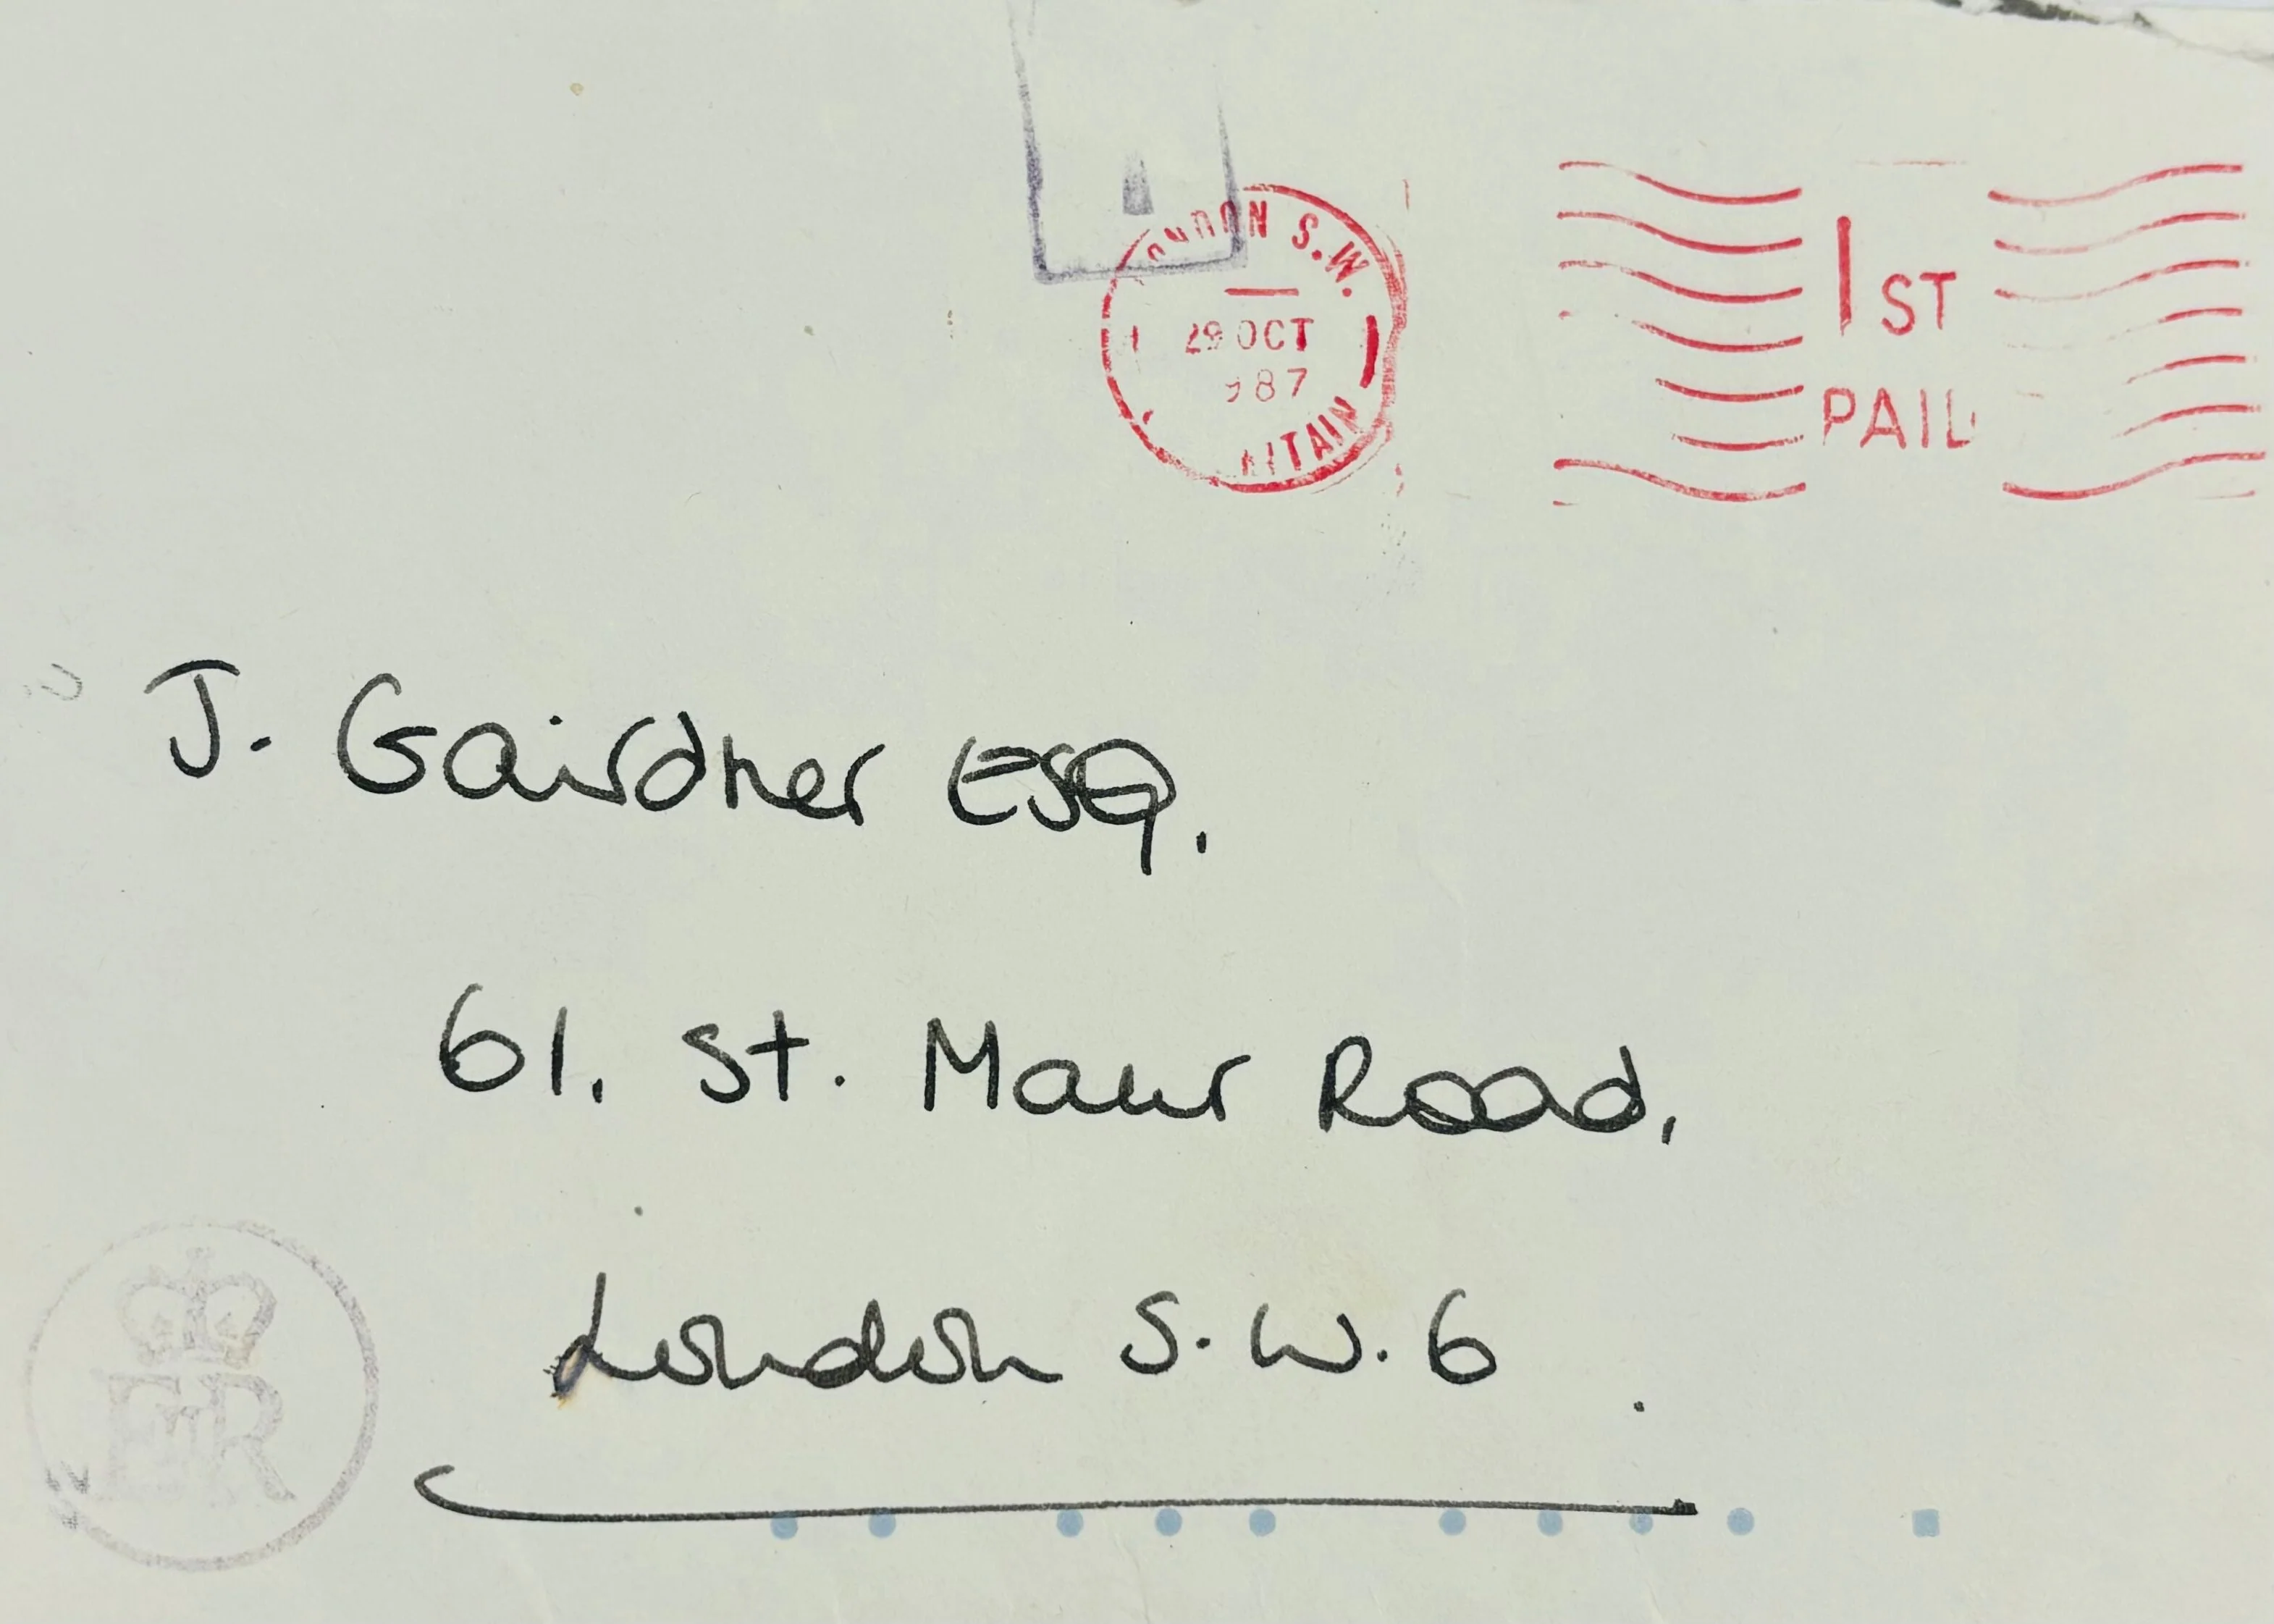 LONDON S.W.
29 OCT
1987
BRITAIN
1ST
PAID
J. Gairdner ESQ.
61, St. Maur Road,
London S.W.6
EIIR